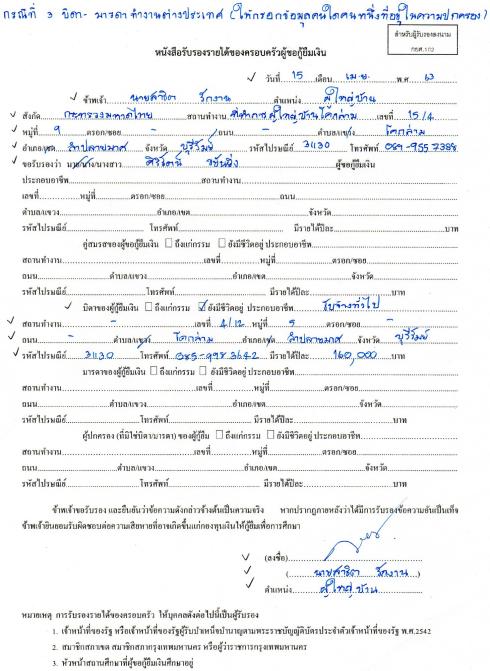 กรณีที่ 3 บิดา- มารดา ทำงานต่างประเทศ (ให้กรอกข้อมูลคนใดคนหนึ่งที่อยู่ในความปกครอง)
สำหรับผู้รับรองลงนาม
กยศ.102
หนังสือรับรองรายได้ของครอบครัวผู้ขอกู้ยืมเงิน
วันที่ 15 เดือน เม.ย. พ.ศ. 63
ข้าพเจ้า นายสาธิตา รักงาน ตำแหน่ง ผู้ใหญ่บ้าน
สังกัด กระทรวงมหาดไทย สถานที่ทำงาน ที่ทำการผู้ใหญ่บ้านโคกล่าม เลขที่ 15/4
หมู่ที่ 9 ตรอก/ซอย - ถนน - ตำบล/แขวง โคกล่าม
อำเภอ/เขต ลำปลายมาศ จังหวัด บุรีรัมย์ รหัสไปรษณีย์ 31130 โทรศัพท์ 089-9557388
ขอรับรองว่า นาย/นาง/นางสาว ศิริรัตน์ ขยันยิ่ง ผู้ขอกู้ยืมเงิน
ประกอบอาชีพ สถานที่ทำงาน
เลขที่ หมู่ที่ ตรอก/ซอย ถนน
ตำบล/แขวง อำเภอ/เขต จังหวัด
รหัสไปรษณีย์ โทรศัพท์ มีรายได้ปีละ บาท
คู่สมรสของผู้ขอกู้ยืมเงิน ถึงแก่กรรม ยังมีชีวิตอยู่ ประกอบอาชีพ
สถานที่ทำงาน เลขที่ หมู่ที่ ตรอก/ซอย
ถนน ตำบล/แขวง อำเภอ/เขต จังหวัด
รหัสไปรษณีย์ โทรศัพท์ มีรายได้ปีละ บาท
บิดาของผู้กู้ยืมเงิน ถึงแก่กรรม ยังมีชีวิตอยู่ ประกอบอาชีพ รับจ้างทั่วไป
สถานที่ทำงาน - เลขที่ 4/12 หมู่ที่ 5 ตรอก/ซอย -
ถนน - ตำบล/แขวง โคกล่าม อำเภอ/เขต ลำปลายมาศ จังหวัด บุรีรัมย์
รหัสไปรษณีย์ 31130 โทรศัพท์ 085-9983642 มีรายได้ปีละ 160,000 บาท
มารดาของผู้กู้ยืมเงิน ถึงแก่กรรม ยังมีชีวิตอยู่ ประกอบอาชีพ
สถานที่ทำงาน เลขที่ หมู่ที่ ตรอก/ซอย
ถนน ตำบล/แขวง อำเภอ/เขต จังหวัด
รหัสไปรษณีย์ โทรศัพท์ มีรายได้ปีละ บาท
ผู้ปกครอง (ที่มิใช่บิดา/มารดา) ของผู้กู้ยืม ถึงแก่กรรม ยังมีชีวิตอยู่ ประกอบอาชีพ
สถานที่ทำงาน เลขที่ หมู่ที่ ตรอก/ซอย
ถนน ตำบล/แขวง อำเภอ/เขต จังหวัด
รหัสไปรษณีย์ โทรศัพท์ มีรายได้ปีละ บาท
ข้าพเจ้าขอรับรอง และยืนยันว่าข้อความดังกล่าวข้างต้นเป็นความจริง หากปรากฏภายหลังว่าได้มีการรับรองข้อความอันเป็นเท็จ
ข้าพเจ้ายินยอมรับผิดชอบต่อความเสียหายที่อาจเกิดขึ้นแก่กองทุนเงินให้กู้ยืมเพื่อการศึกษา
(ลงชื่อ)
( นายสาธิตา รักงาน )
ตำแหน่ง ผู้ใหญ่บ้าน
หมายเหตุ การรับรองรายได้ของครอบครัว ให้บุคคลดังต่อไปนี้เป็นผู้รับรอง
1. เจ้าหน้าที่ของรัฐ หรือเจ้าหน้าที่ของรัฐผู้รับบำเหน็จบำนาญตามพระราชบัญญัติบัตรประจำตัวเจ้าหน้าที่ของรัฐ พ.ศ.2542
2. สมาชิกสภาเขต สมาชิกสภากรุงเทพมหานคร หรือผู้ว่าราชการกรุงเทพมหานคร
3. หัวหน้าสถานศึกษาที่ผู้ขอกู้ยืมเงินศึกษาอยู่